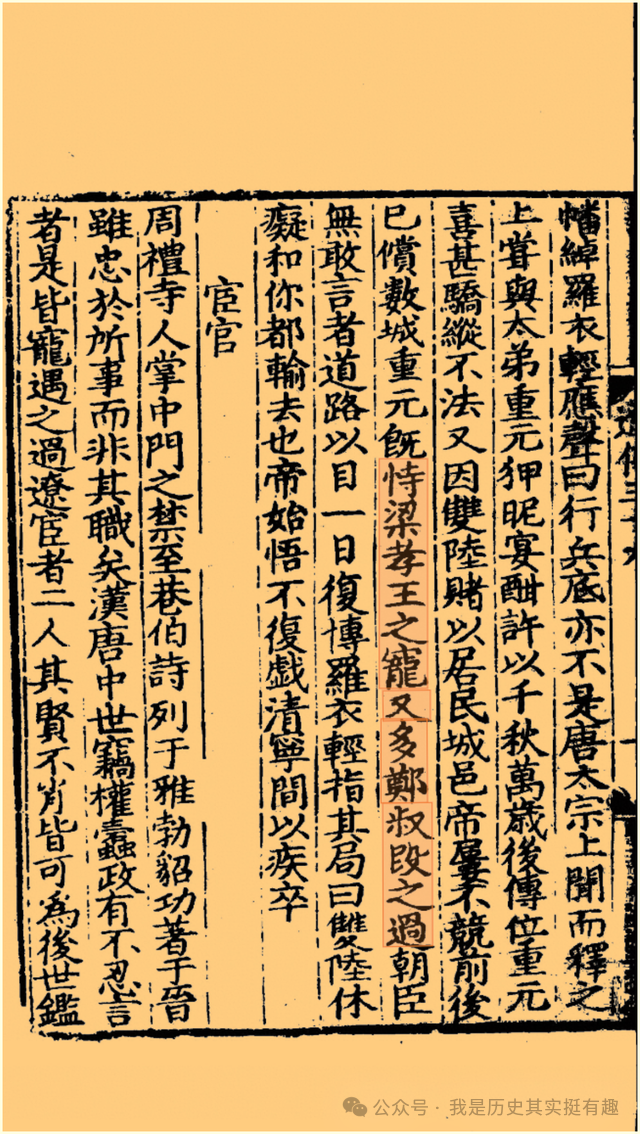 幡綽羅衣輕應聲曰行兵底亦不是唐太宗上聞而釋之
上嘗與太弟重元狎昵宴酣許以千秋萬歲後傳位重元
喜甚驕縱不法又因雙陸賭以居民城邑帝屢不競前後
已償數城重元旣恃梁孝王之寵又多鄭叔段之過朝臣
無敢言者道路以目一日復博羅衣輕指其局曰雙陸休
癡和你都輸去也帝始悟不復戯清寧間以疾卒
宦官
周禮寺人掌中門之禁至巷伯詩列于雅勃貂功著于晉
雖忠於所事而非其職矣漢唐中世竊權蠹政有不忍言
者是皆寵遇之過遼宦者二人其賢不肖皆可為後世鑑
公众号·我是历史其实挺有趣